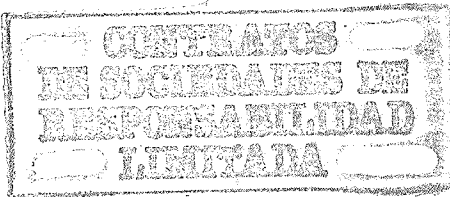 CONTRATOS
DE SOCIEDADES DE
RESPONSABILIDAD
LIMITADA